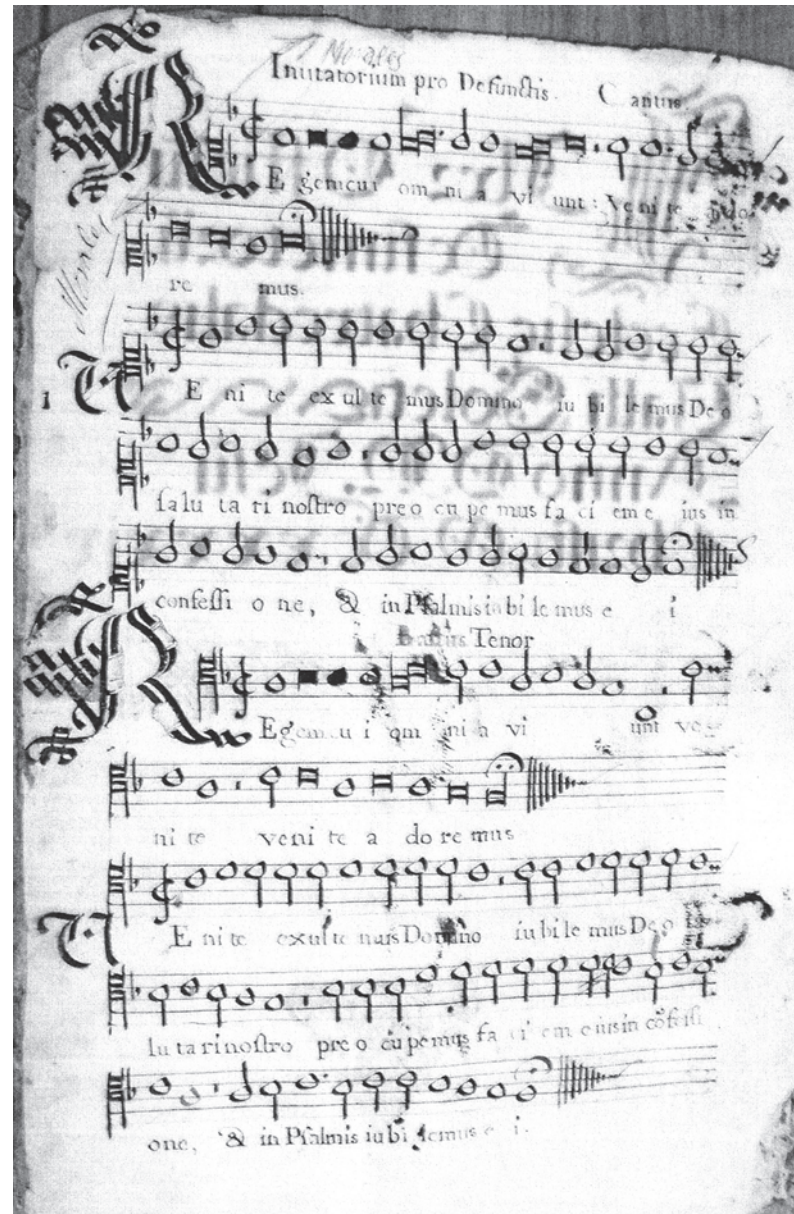 Morales
Inuitatorium pro Defunctis. Cantus.
R E gem cui om ni a vi unt: Ve ni te
re mus.
Morales
1 V E ni te ex ul te mus Domino iu bi le mus De o
salu ta ri nostro pre o cu pe mus fa ci em e ius in
confessi o ne, & in Psalmis iu bi le mus e i
Tenor
R E gem cu i om ni a vi unt ve
ni te ve ni te a do re mus
V E ni te exul te mus Domino iu bi le mus De o
lu ta ri nostro pre o cu pe mus fa ci em e ius in cõfessi
one, & in Psalmis iu bi lemus e i.